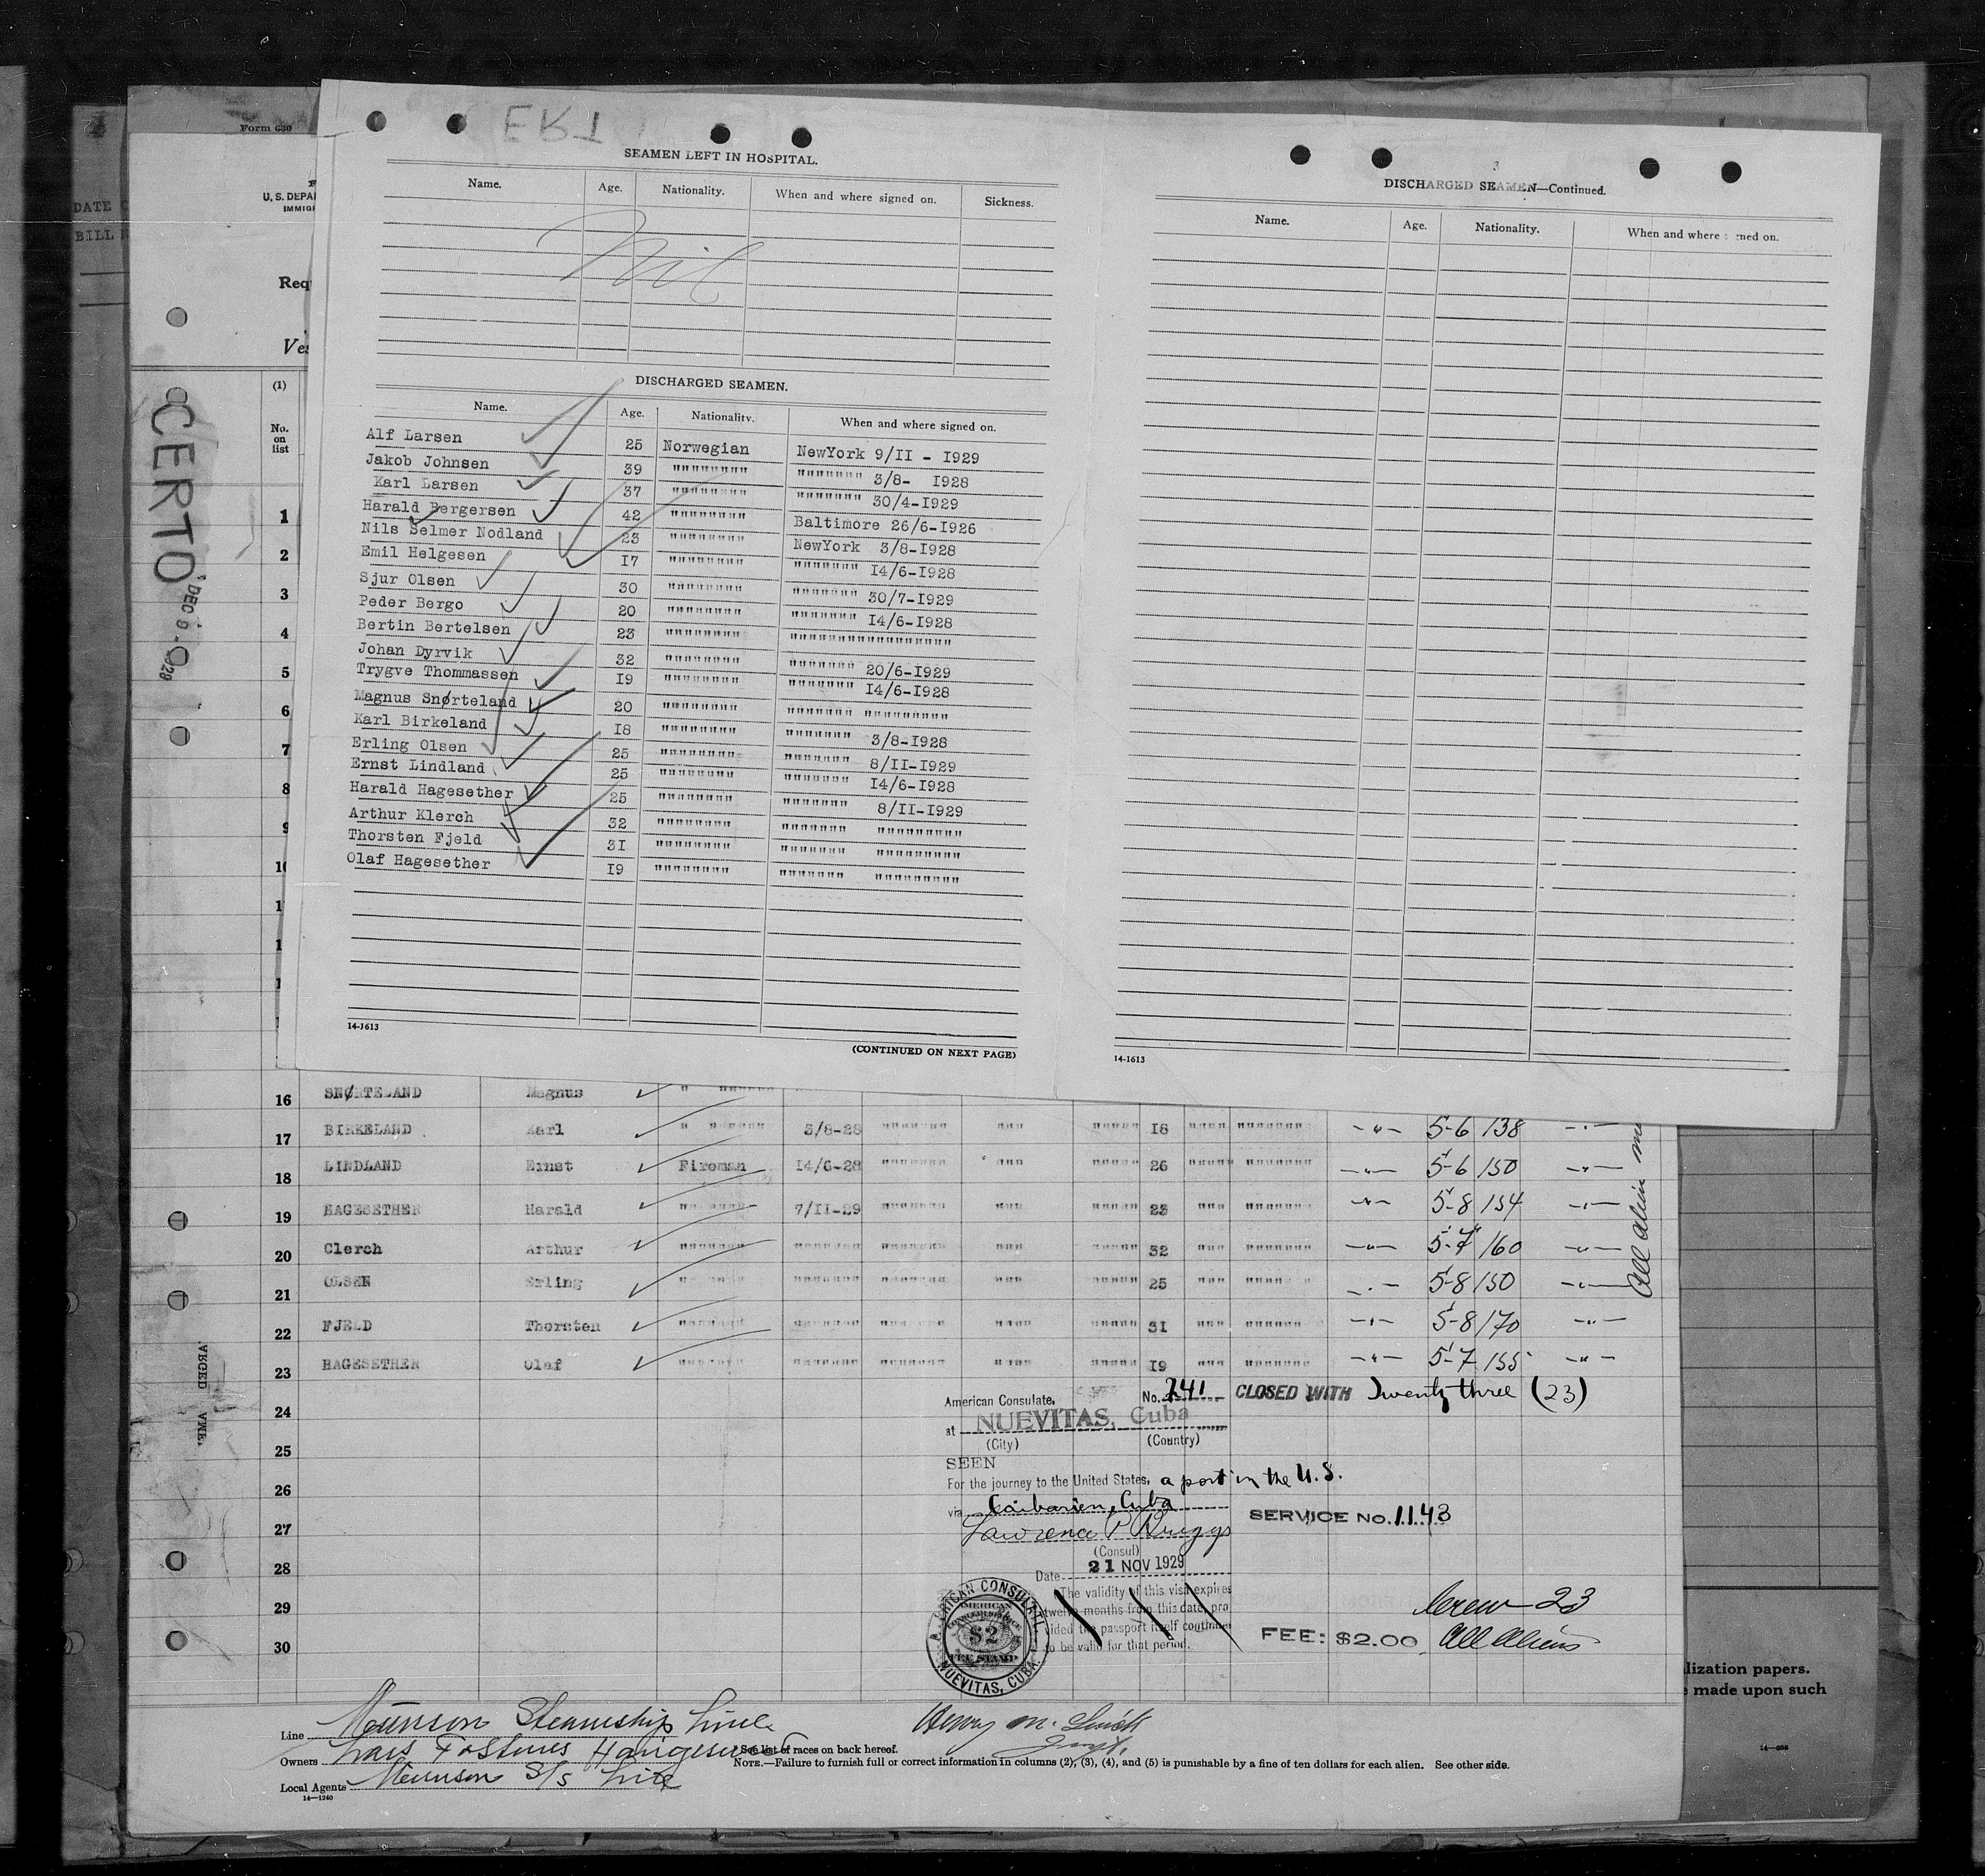 Form 630
DATE
BILL
U. S. DEPA
IMMIG
Req
Ves
(1)
No.
on
list
CERTO
DEC 9 - 1929
SEAMEN LEFT IN HOSPITAL.
Name. Age. Nationality. When and where signed on. Sickness.
Nil
DISCHARGED SEAMEN.
Name. Age. Nationality. When and where signed on.
Alf Larsen 25 Norwegian NewYork 9/II - I929
Jakob Johnsen 39 """""""" """"""" 3/8- I928
Karl Larsen 37 """""""" """"""" 30/4-I929
Harald Bergersen 42 """""""" Baltimore 26/6-I926
Nils Selmer Nodland 23 """""""" NewYork 3/8-I928
Emil Helgesen I7 """""""" """"""" I4/6-I928
Sjur Olsen 30 """""""" """"""" 30/7-I929
Peder Bergo 20 """""""" """"""" I4/6-I928
Bertin Bertelsen 23 """""""" """""""""""""""""
Johan Dyrvik 32 """""""" """"""" 20/6-I929
Trygve Thommassen I9 """""""" """"""" I4/6-I928
Magnus Snørteland 20 """""""" """"""" """""""""
Karl Birkeland I8 """""""" """"""" 3/8-I928
Erling Olsen 25 """""""" """"""" 8/II-I929
Ernst Lindland 25 """""""" """"""" I4/6-I928
Harald Hagesether 25 """""""" """"""" 8/II-I929
Arthur Klerch 32 """""""" """"""" """""""""
Thorsten Fjeld 3I """""""" """"""" """""""""
Olaf Hagesether I9 """""""" """"""" """""""""
14-1613
(CONTINUED ON NEXT PAGE)
3
DISCHARGED SEAMEN—Continued.
Name. Age. Nationality. When and where signed on.
14-1613
1
2
3
4
5
6
7
8
9
10
16 SNØRTELAND Magnus " """"""
17 BIRKELAND Karl " """""" 3/8-28 """"""" """ """"" I8 """" """"""" -"- 5-6 138 -"-
18 LINDLAND Ernst Fireman I4/6-28 """"""" """ """"" 26 """"" """"""" -"- 5-6 150 -"-
19 HAGESETHER Harald """"""" 7/II-29 """"""" """ """"" 25 """ """"""" -"- 5-8 154 -"-
20 Clerch Arthur """"""" """"""" """"""" """ """"" 32 """ """"""" -"- 5-7 160 -"-
21 OLSEN Erling """"""" """"""" """"""" """ """"" 25 """ """"""" -"- 5-8 150 -"-
22 FJELD Thorsten """"""" """"""" """"""" """" """"" 3I """ """""" -"- 5-8 170 -"-
23 HAGESETHER Olaf """"""" """"""" """"""" """" """"" I9 """ """"""" -"- 5-7 155 -"-
24
25
26
27
28
29
30
All alien
American Consulate, No. 741 CLOSED WITH Twenty three (23)
at NUEVITAS, Cuba
(City) (Country)
SEEN
For the journey to the United States, a port in the U.S.
via Caibarien, Cuba
Lawrence P Briggs SERVICE No. 1143
(Consul)
Date 21 NOV 1929
The validity of this visa expires
twelve months from this date, pro
vided the passport itself continues
to be valid for that period.
AMERICAN CONSULATE
AMERICAN
CONSULAR SERVICE
$2
FEE STAMP
NUEVITAS, CUBA.
Crew 23
FEE: $2.00 All Aliens
lization papers.
made upon such
Line Munson Steamship Line
Owners Haugesund
See list of races on back hereof.
NOTE.—Failure to furnish full or correct information in columns (2), (3), (4), and (5) is punishable by a fine of ten dollars for each alien. See other side.
Local Agents Munson S/s Line
14—1240